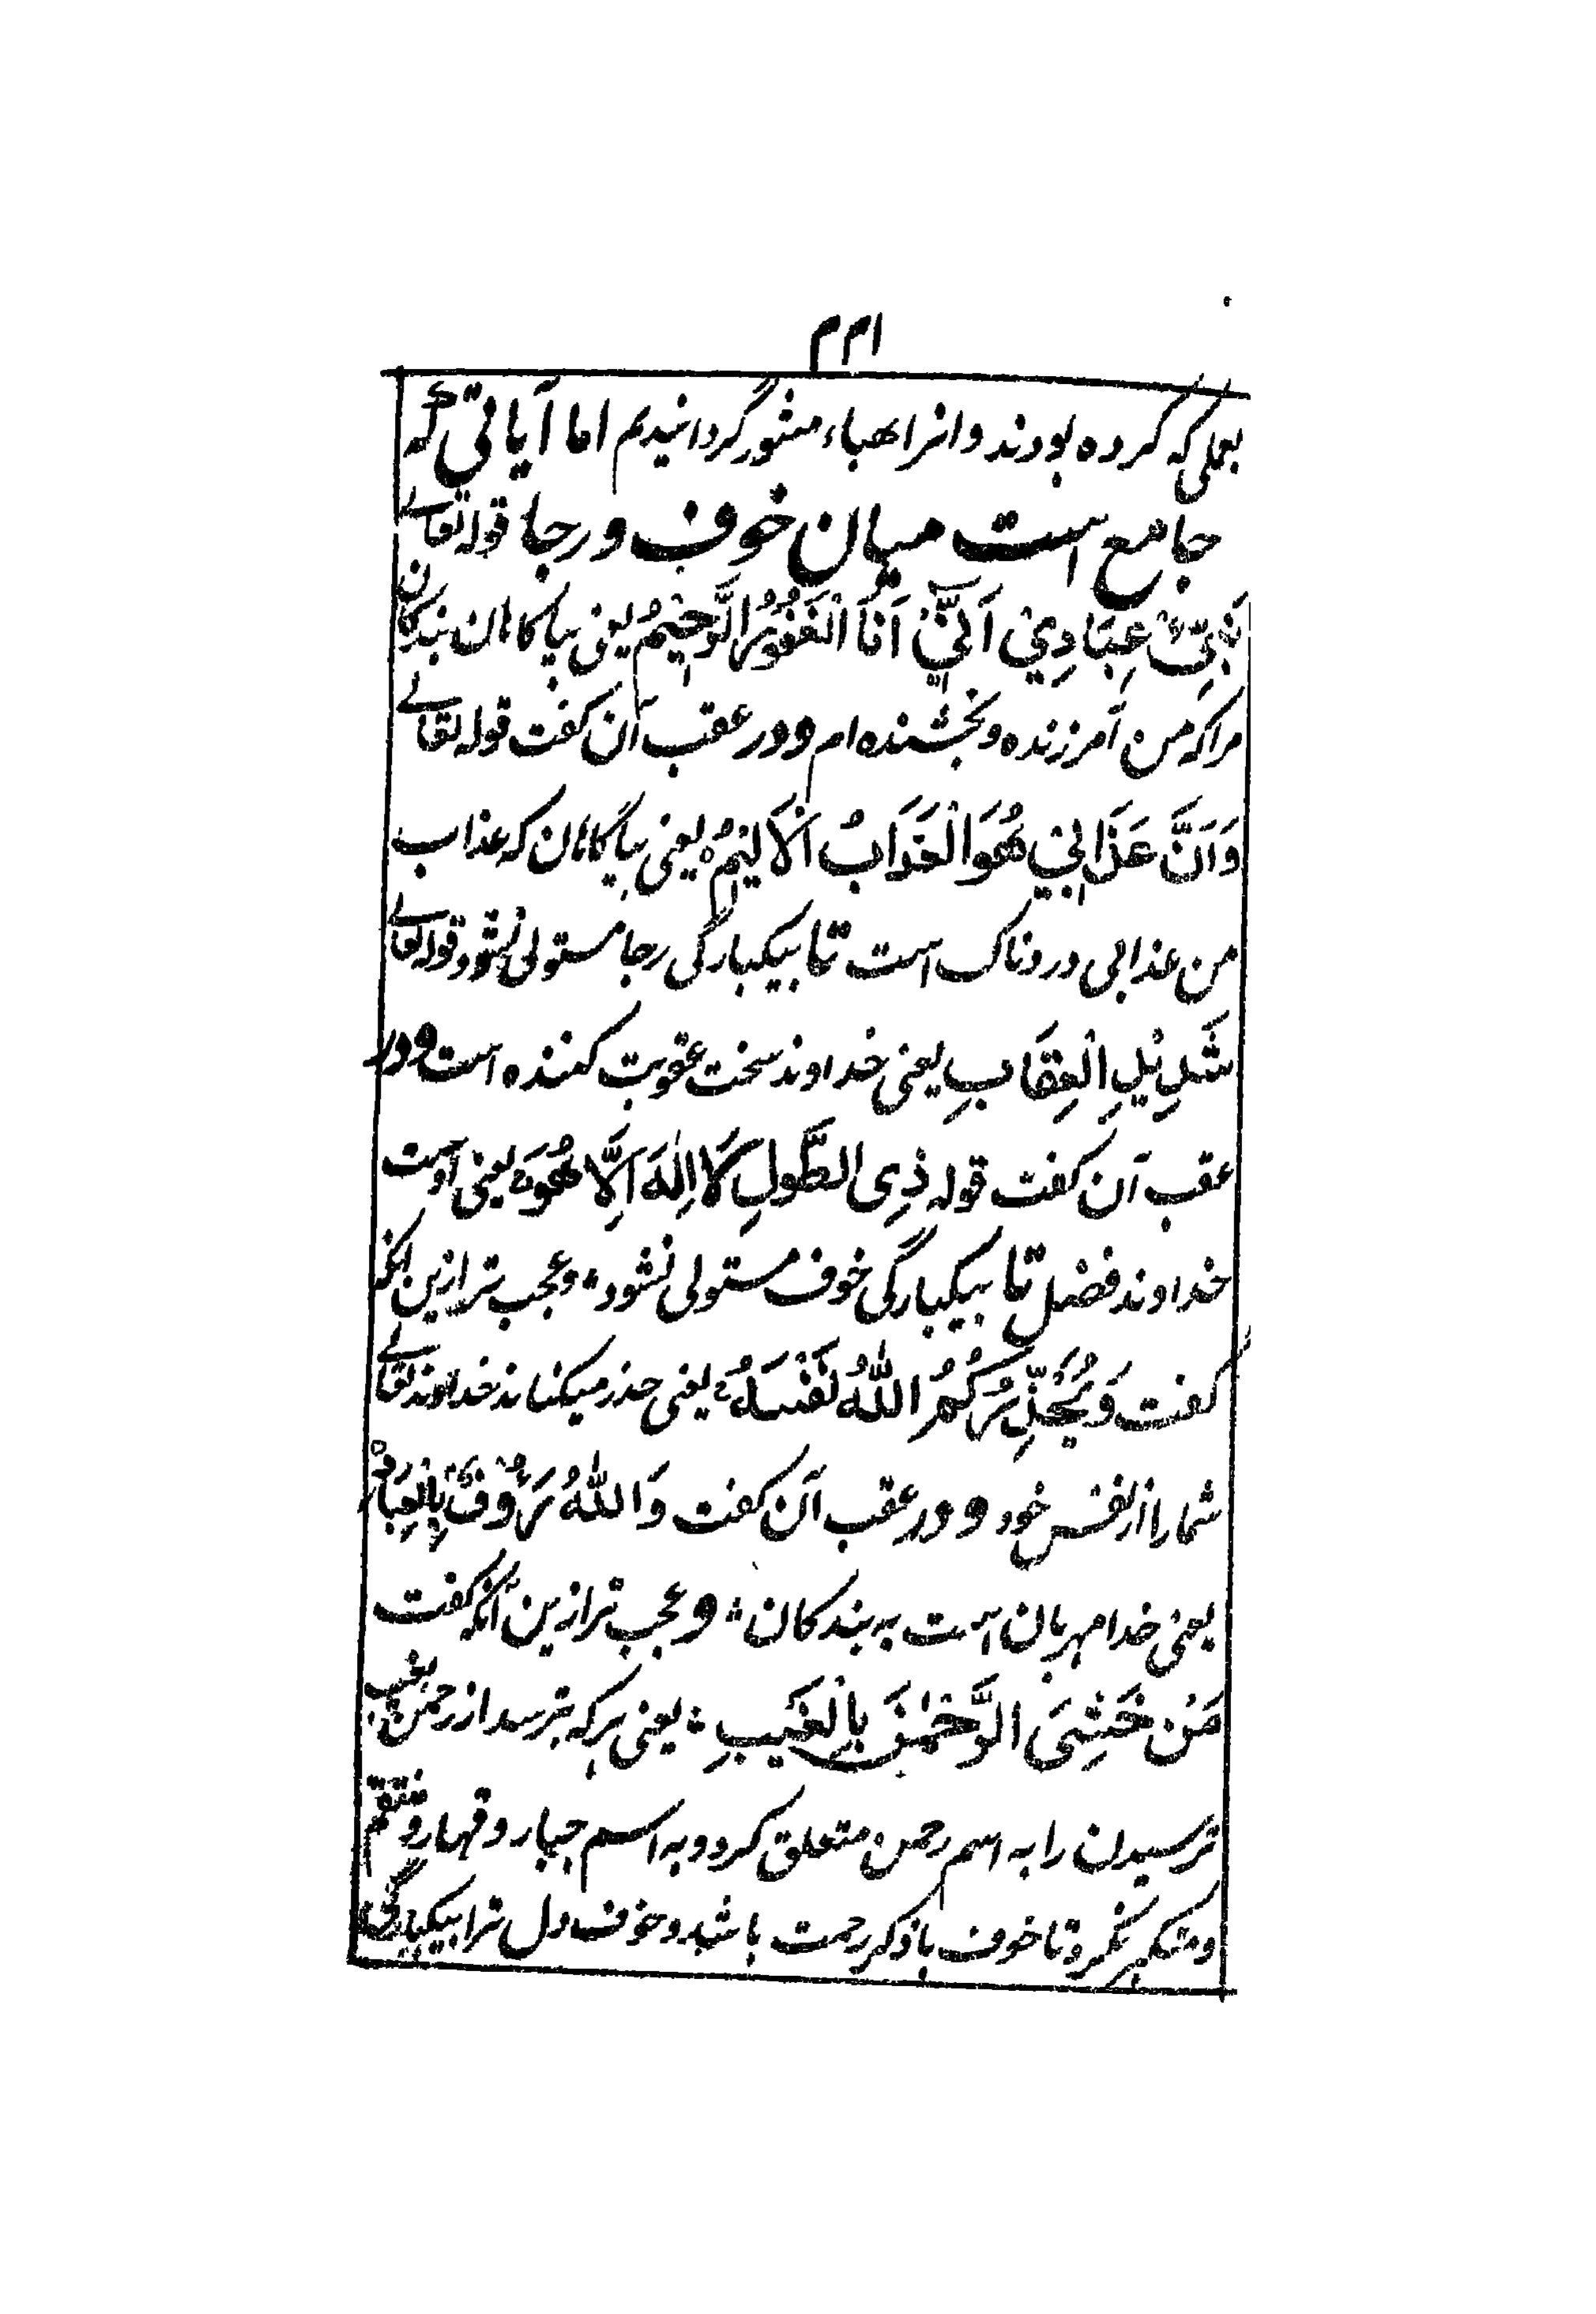 ۱۴۴
بعملی که کرده بودند و انرا هباء منثور گردانیدیم اما آیاتی که
جامع است میان خوف و رجا قوله تعالے
نَبِّئْ عِبَادِيْ اَنِّيْ اَنَا الْغَفُوْرُ الرَّحِيْمُ یعنی بیاگاهان بندگان
مرا که من آمرزنده و بخشنده ام و در عقب آن گفت قوله تعالے
وَاَنَّ عَذَابِيْ هُوَ الْعَذَابُ الْاَلِيْمُ یعنی بیاگاهان که عذاب
من عذابی دردناک است تا بیکبارگی رجا مستولی نشود و قوله تعالے
شَدِيْدِ الْعِقَابِ یعنی خداوند سخت عقوبت کننده است و در
عقب آن گفت قوله ذِی الطَّوْلِ لَا اِلٰهَ اِلَّا هُوَ یعنی اوست
خداوند فضل تا بیکبارگی خوف مستولی نشود و عجب تر ازین آنکه
گفت وَيُحَذِّرُكُمُ اللّٰهُ نَفْسَهُ یعنی حذر میکناند خداوند تعالے
شما را از نفس خود و در عقب آن گفت وَاللّٰهُ رَءُوْفٌ بِالْعِبَادِ
یعنی خدا مهربان است به بندگان و عجب تر ازین آنکه گفت
مَنْ خَشِیَ الرَّحْمٰنَ بِالْغَيْبِ یعنی هر که بترسد از رحمن بغیب
ترسیدن را به اسم رحمن متعلق کرد و به اسم جبار و قهار و منتقم
و متکبر نکرد تا خوف با ذکر رحمت باشد و خوف دل ترا بیکبارگی